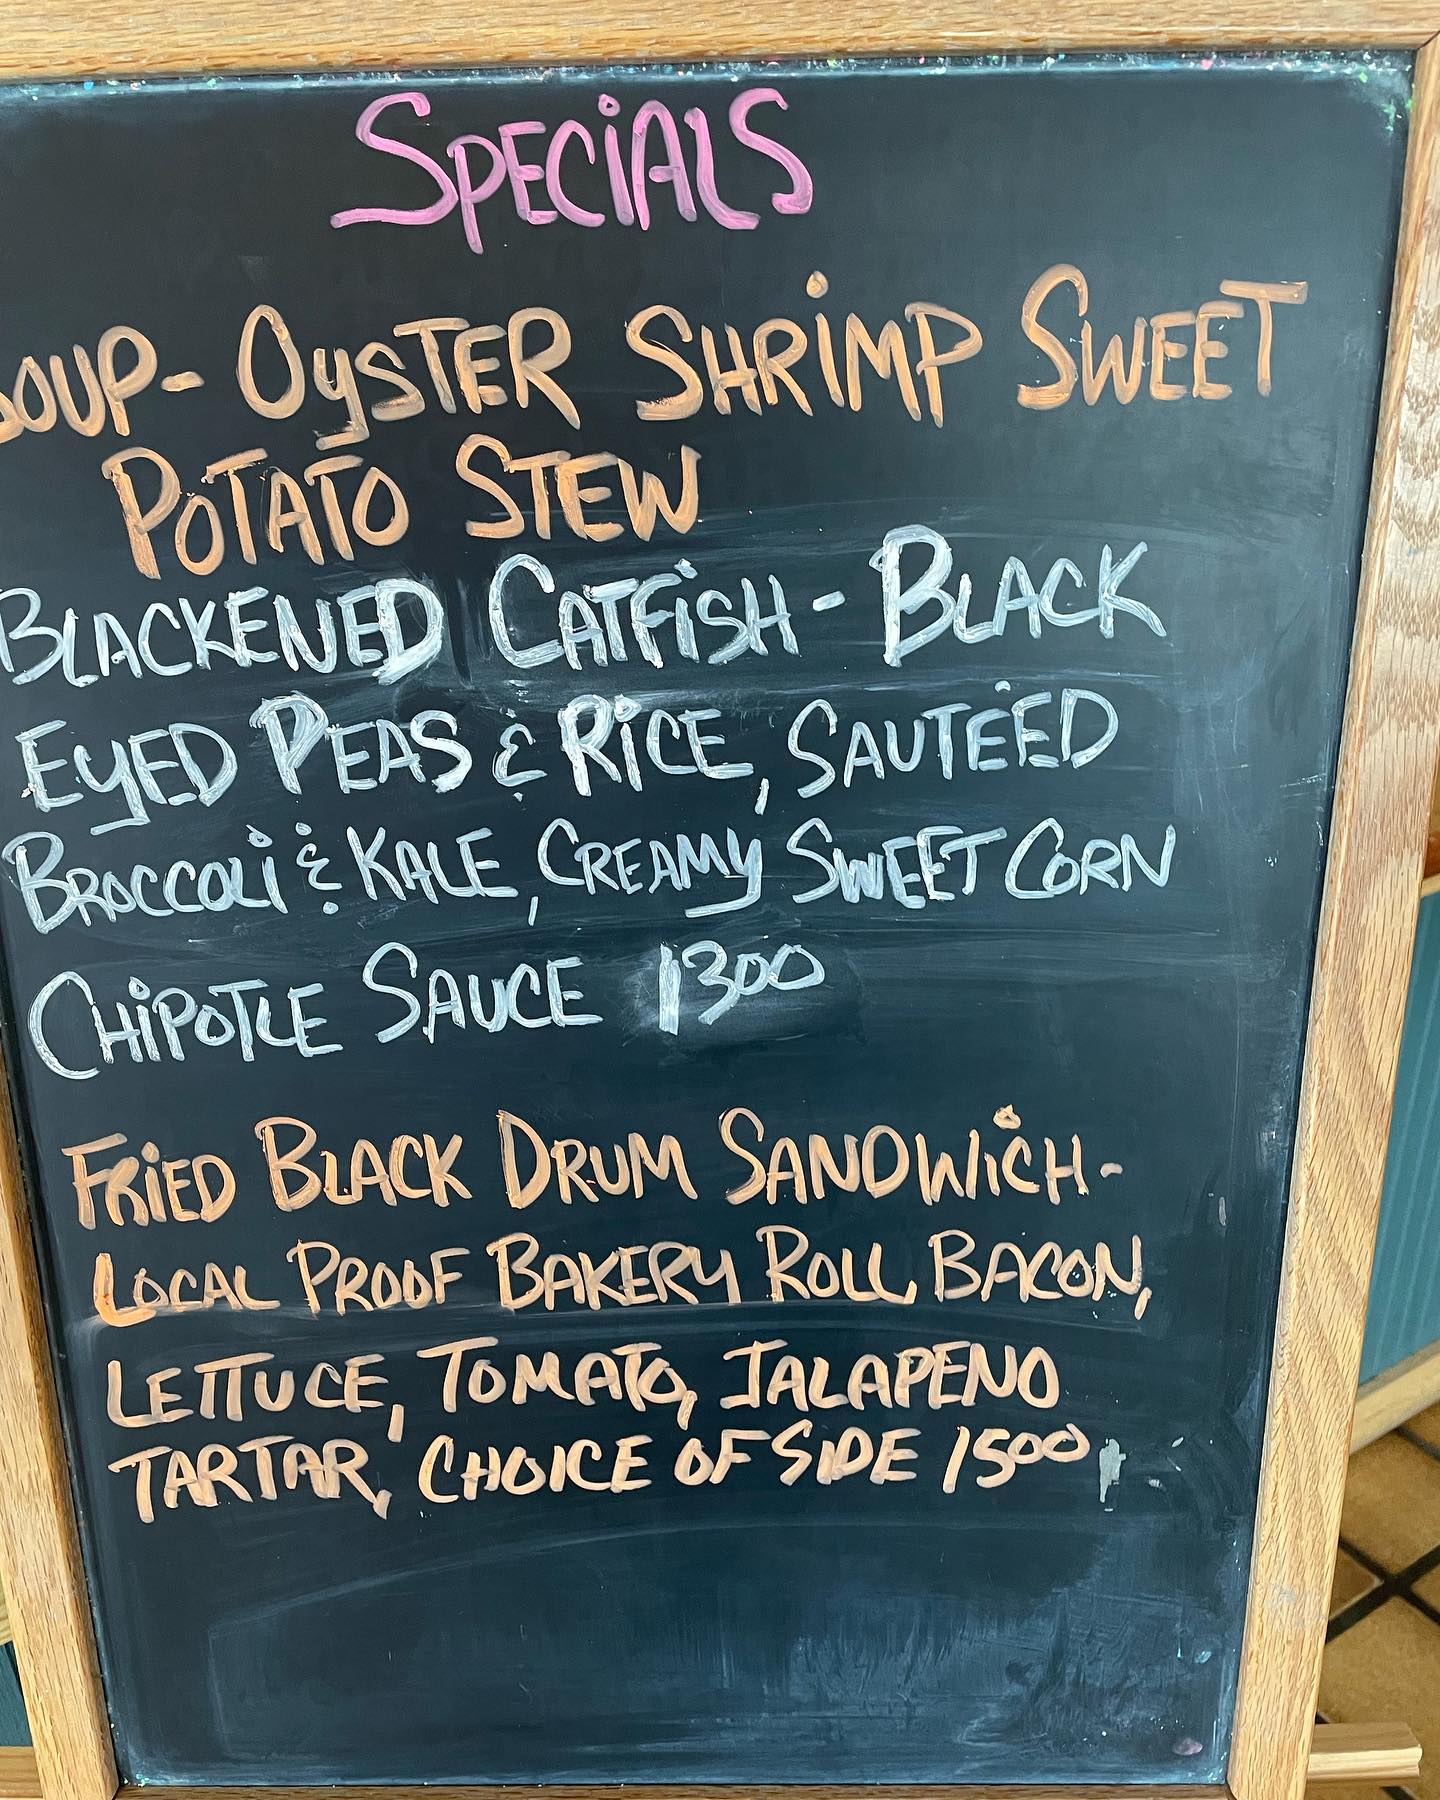 SPECiALS
SOUP- OySTER SHRiMP SWEET
POTATO STEW
BLACKENED CATFiSH - BLACK
EyED PEAS & RiCE, SAUTEED
BROCCOLi & KALE, CREAMy SWEET CORN
CHiPOTLE SAUCE 1300
FRiED BLACK DRUM SANDWiCH-
LOCAL PROOF BAKERY ROLL, BACON,
LETTUCE, TOMATO, JALAPENO
TARTAR, CHOICE OF SIDE 1500